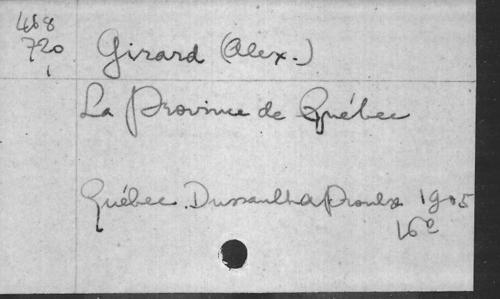 468
720
1
Girard (Alex.)
La Province de Québec
Québec. Dussault & Proulx 1905
16e